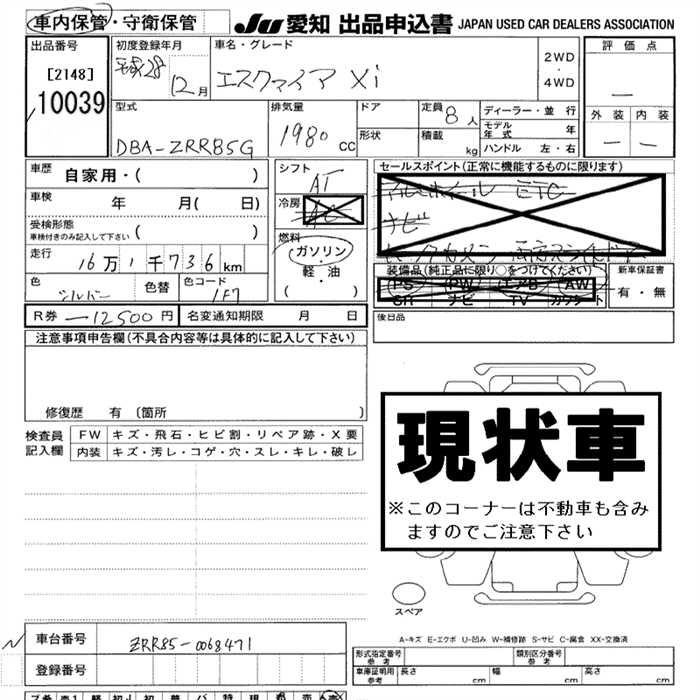 車内保管・守衛保管
JU 愛知 出品申込書 JAPAN USED CAR DEALERS ASSOCIATION
出品番号
[2148]
10039
初度登録年月
平成28
12月
車名・グレード
エスクァイア Xi
2WD
・
4WD
評価点
—
外装 内装
— —
型式
DBA-ZRR85G
排気量
1980 cc
ドア
形状
定員 8人
積載 kg
ディーラー・並行
モデル年式 年
ハンドル 左・右
車歴 自家用・( )
車検 年 月( 日)
受検形態
車検付きのみ記入して下さい ( )
走行 16万1千736km
色 シルバー 色替
色コード 1F7
シフト AT
冷房 AC
燃料
ガソリン
・
軽・油
( )
セールスポイント(正常に機能するものに限ります)
ETC
ナビ
装備品(純正品に限り○をつけてください)
PS PW エアB AW
SR ナビ TV カワシート
新車保証書
有・無
R券 —12500円 名変通知期限 月 日
後日品
注意事項申告欄(不具合内容等は具体的に記入して下さい)
修復歴 有 (箇所 )
検査員
記入欄
FW キズ・飛石・ヒビ割・リペア跡・X要
内装 キズ・汚レ・コゲ・穴・スレ・キレ・破レ
現状車
※このコーナーは不動車も含み
ますのでご注意下さい
スペア
A-キズ E-エクボ U-凹み W-補修跡 S-サビ C-腐食 XX-交換済
車台番号 ZRR85-0068471
登録番号
形式指定番号 参考
類別区分番号 参考
車庫証明用 参考 長さ cm 幅 cm 高さ cm